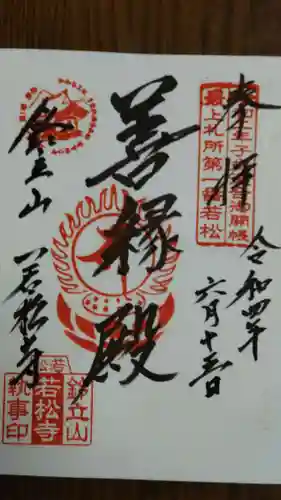 奉拝
最上札所第一番若松
令和四年
六月十三日
善縁殿
鈴立山
若松寺
鈴立山
若松寺
執事印